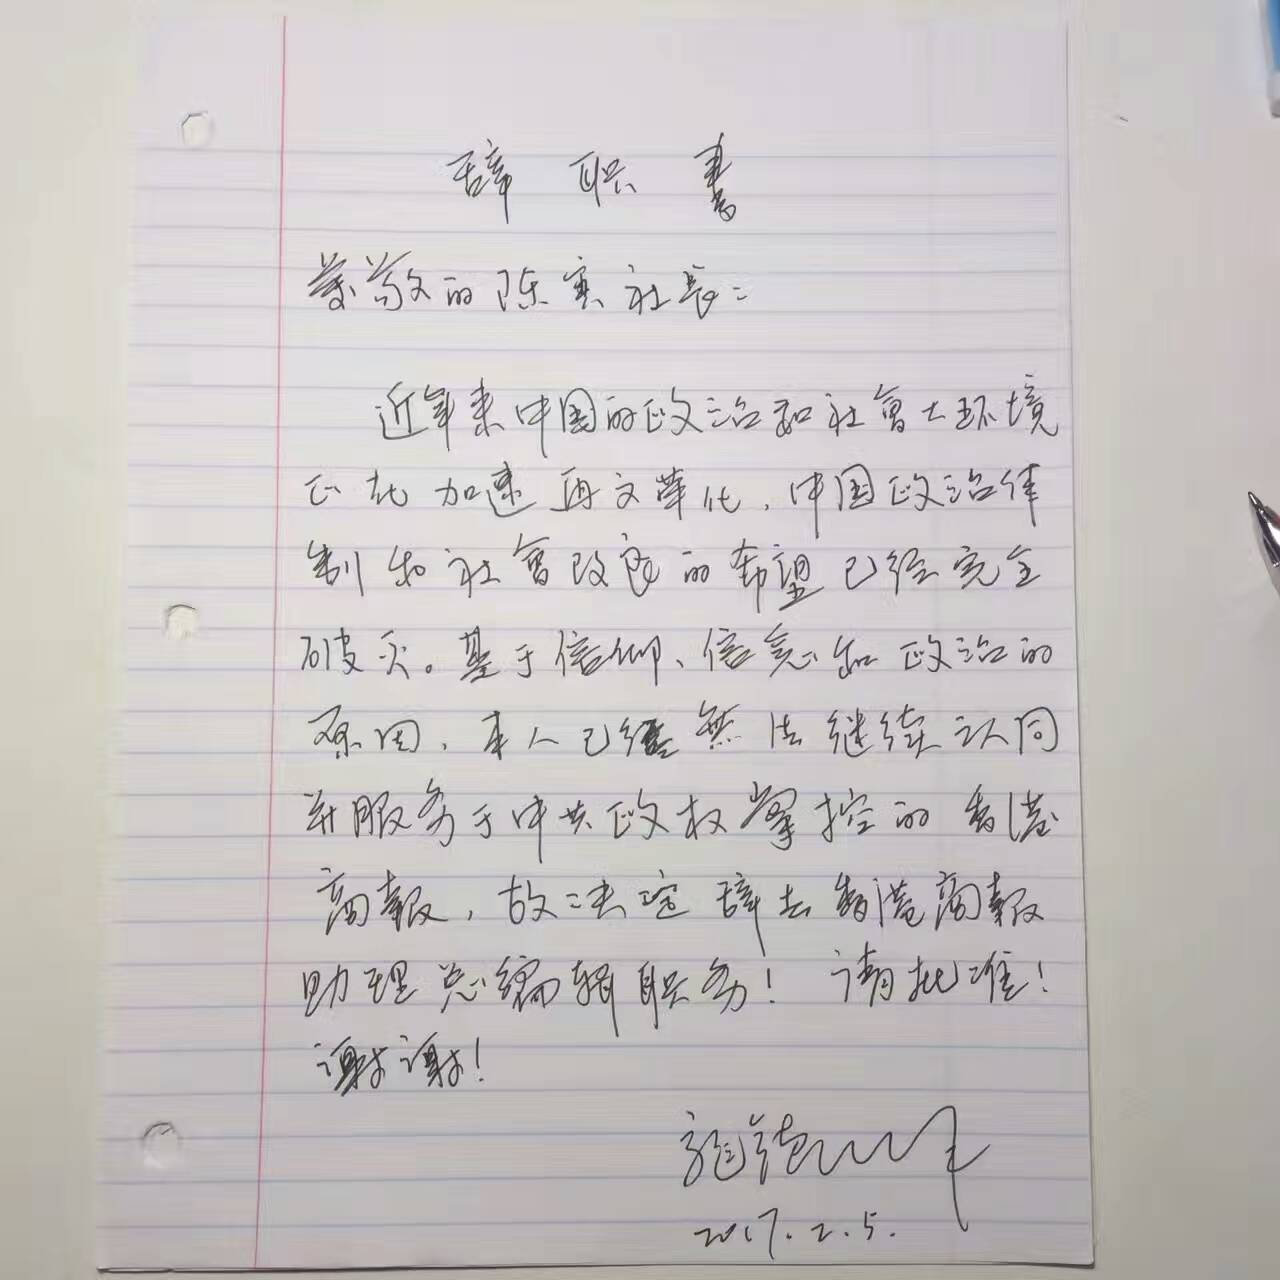 辞职書
尊敬的陈寅社長：
近年来中国的政治和社會大环境
正在加速再文革化，中国政治体
制和社會改良的希望已经完全
破灭。基于信仰、信念和政治的
原因，本人已經無法继续认同
并服务于中共政权掌控的香港
商報，故决定辞去香港商報
助理总编辑职务！请批准！
谢谢！
2017.2.5.